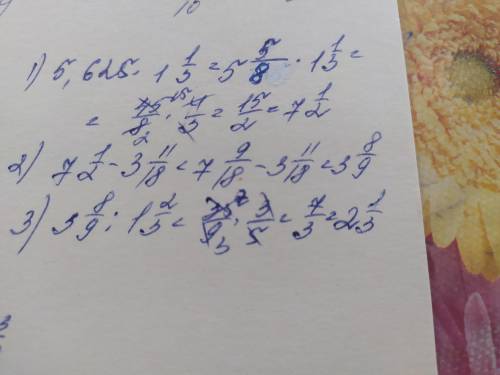 1) 5,625 · 1 1/3 = 5 5/8 · 1 1/3 =
= 45/8 · 4/3 = 15/2 = 7 1/2
2) 7 1/2 - 3 11/18 = 7 9/18 - 3 11/18 = 3 8/9
3) 3 8/9 : 1 2/3 = 35/9 · 3/5 = 7/3 = 2 1/3